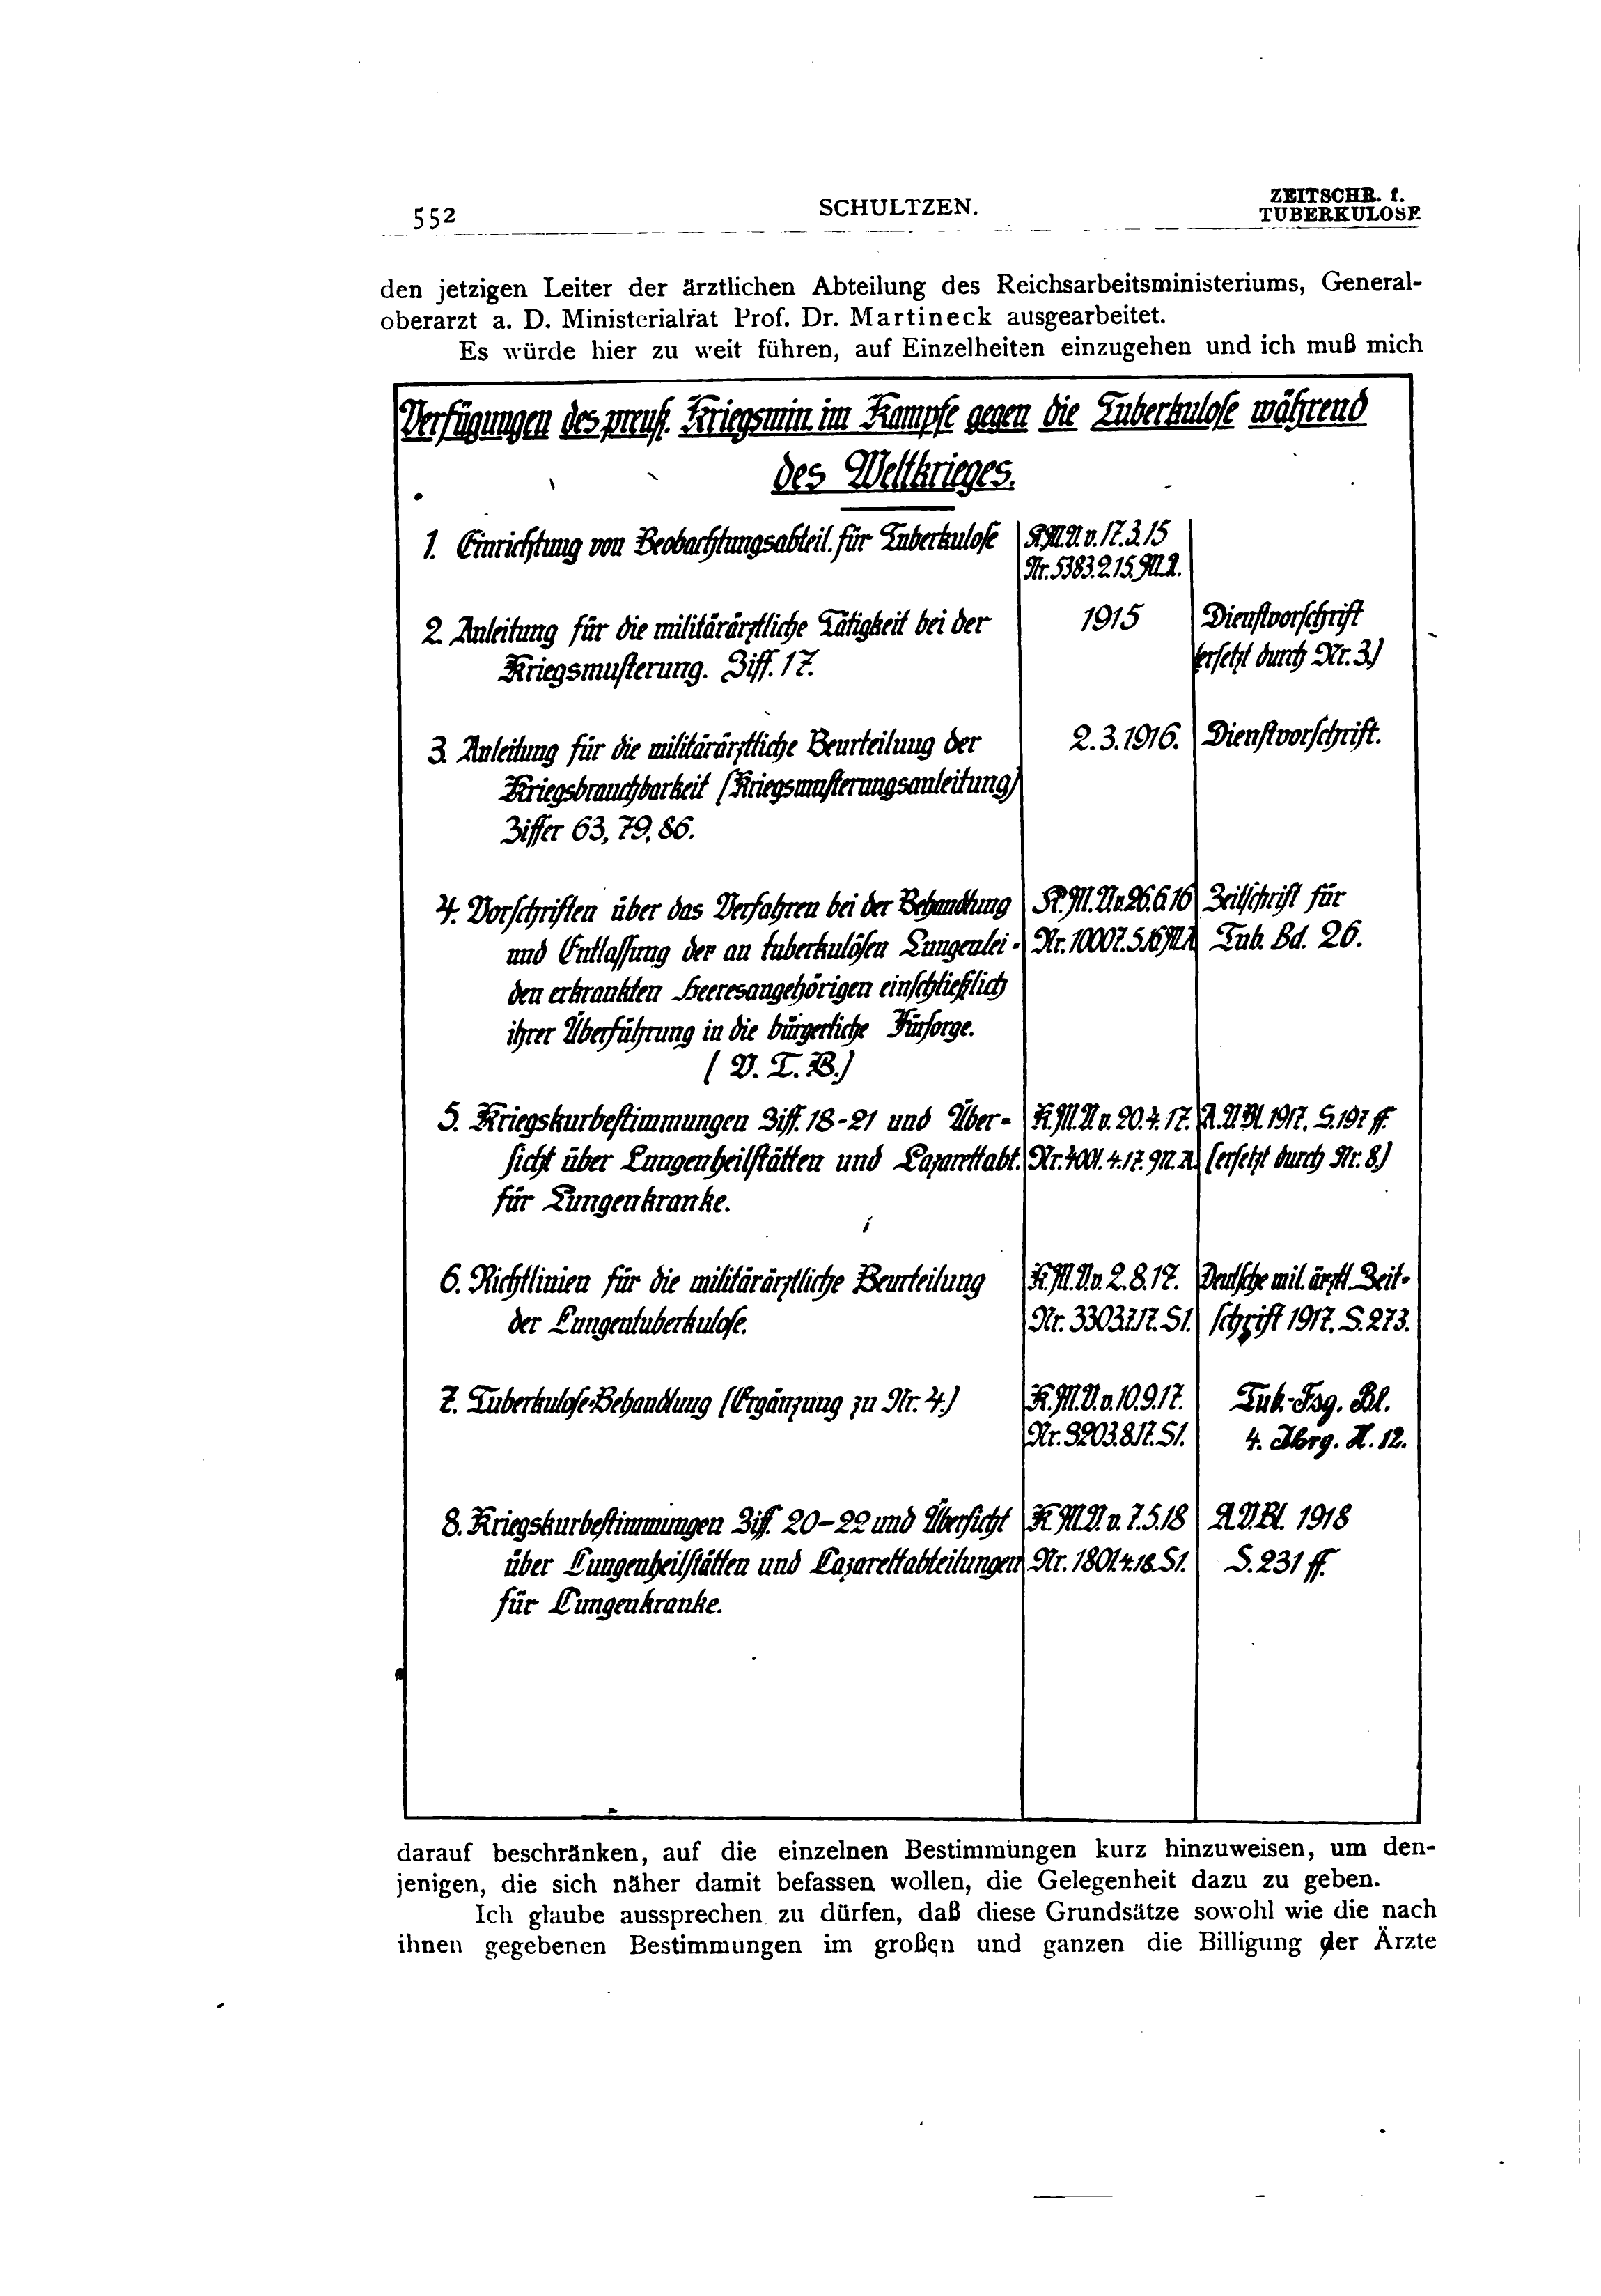 552
SCHULTZEN.
ZEITSCHR. f.
TUBERKULOSE
den jetzigen Leiter der ärztlichen Abteilung des Reichsarbeitsministeriums, General-
oberarzt a. D. Ministerialrat Prof. Dr. Martineck ausgearbeitet.
Es würde hier zu weit führen, auf Einzelheiten einzugehen und ich muß mich
Verfügungen des preuß. Kriegsmin. im Kampfe gegen die Tuberkulose während
des Weltkrieges.
1. Einrichtung von Beobachtungsabteil. für Tuberkulose
K.M.V. v. 17.3.15
Nr. 5383.2.15. M.A.
2. Anleitung für die militärärztliche Tätigkeit bei der
Kriegsmusterung. Ziff. 17.
1915
Dienstvorschrift
(ersetzt durch Nr. 3.)
3. Anleitung für die militärärztliche Beurteilung der
Kriegsbrauchbarkeit (Kriegsmusterungsanleitung)
Ziffer 63, 79, 86.
2.3.1916.
Dienstvorschrift.
4. Vorschriften über das Verfahren bei der Behandlung
und Entlassung der an tuberkulösen Lungenlei-
den erkrankten Heeresangehörigen einschließlich
ihrer Überführung in die bürgerliche Fürsorge.
( V. T. B.)
K.M.V. v. 26.6.16
Nr. 10007.5.16 M.A.
Zeitschrift für
Tub. Bd. 26.
5. Kriegskurbestimmungen Ziff. 18-21 und Über-
sicht über Lungenheilstätten und Lazarettabt.
für Lungenkranke.
K.M.V. v. 20.4.17.
Nr. 4001.4.17. M.A.
A.V.Bl. 1917. S. 197 ff.
(ersetzt durch Nr. 8.)
6. Richtlinien für die militärärztliche Beurteilung
der Lungentuberkulose.
K.M.V. v. 2.8.17.
Nr. 3303.7.17. S1.
Deutsche mil. ärztl. Zeit-
schrift 1917. S. 273.
7. Tuberkulose-Behandlung (Ergänzung zu Nr. 4.)
K.M.V. v. 10.9.17.
Nr. 3203.8.17. S1.
Tub.-Fsg. Bl.
4. Jhrg. H. 12.
8. Kriegskurbestimmungen Ziff. 20-22 und Übersicht
über Lungenheilstätten und Lazarettabteilungen
für Lungenkranke.
K.M.V. v. 7.5.18
Nr. 1801.4.18. S1.
A.V.Bl. 1918
S. 231 ff.
darauf beschränken, auf die einzelnen Bestimmungen kurz hinzuweisen, um den-
jenigen, die sich näher damit befassen wollen, die Gelegenheit dazu zu geben.
Ich glaube aussprechen zu dürfen, daß diese Grundsätze sowohl wie die nach
ihnen gegebenen Bestimmungen im großen und ganzen die Billigung der Ärzte